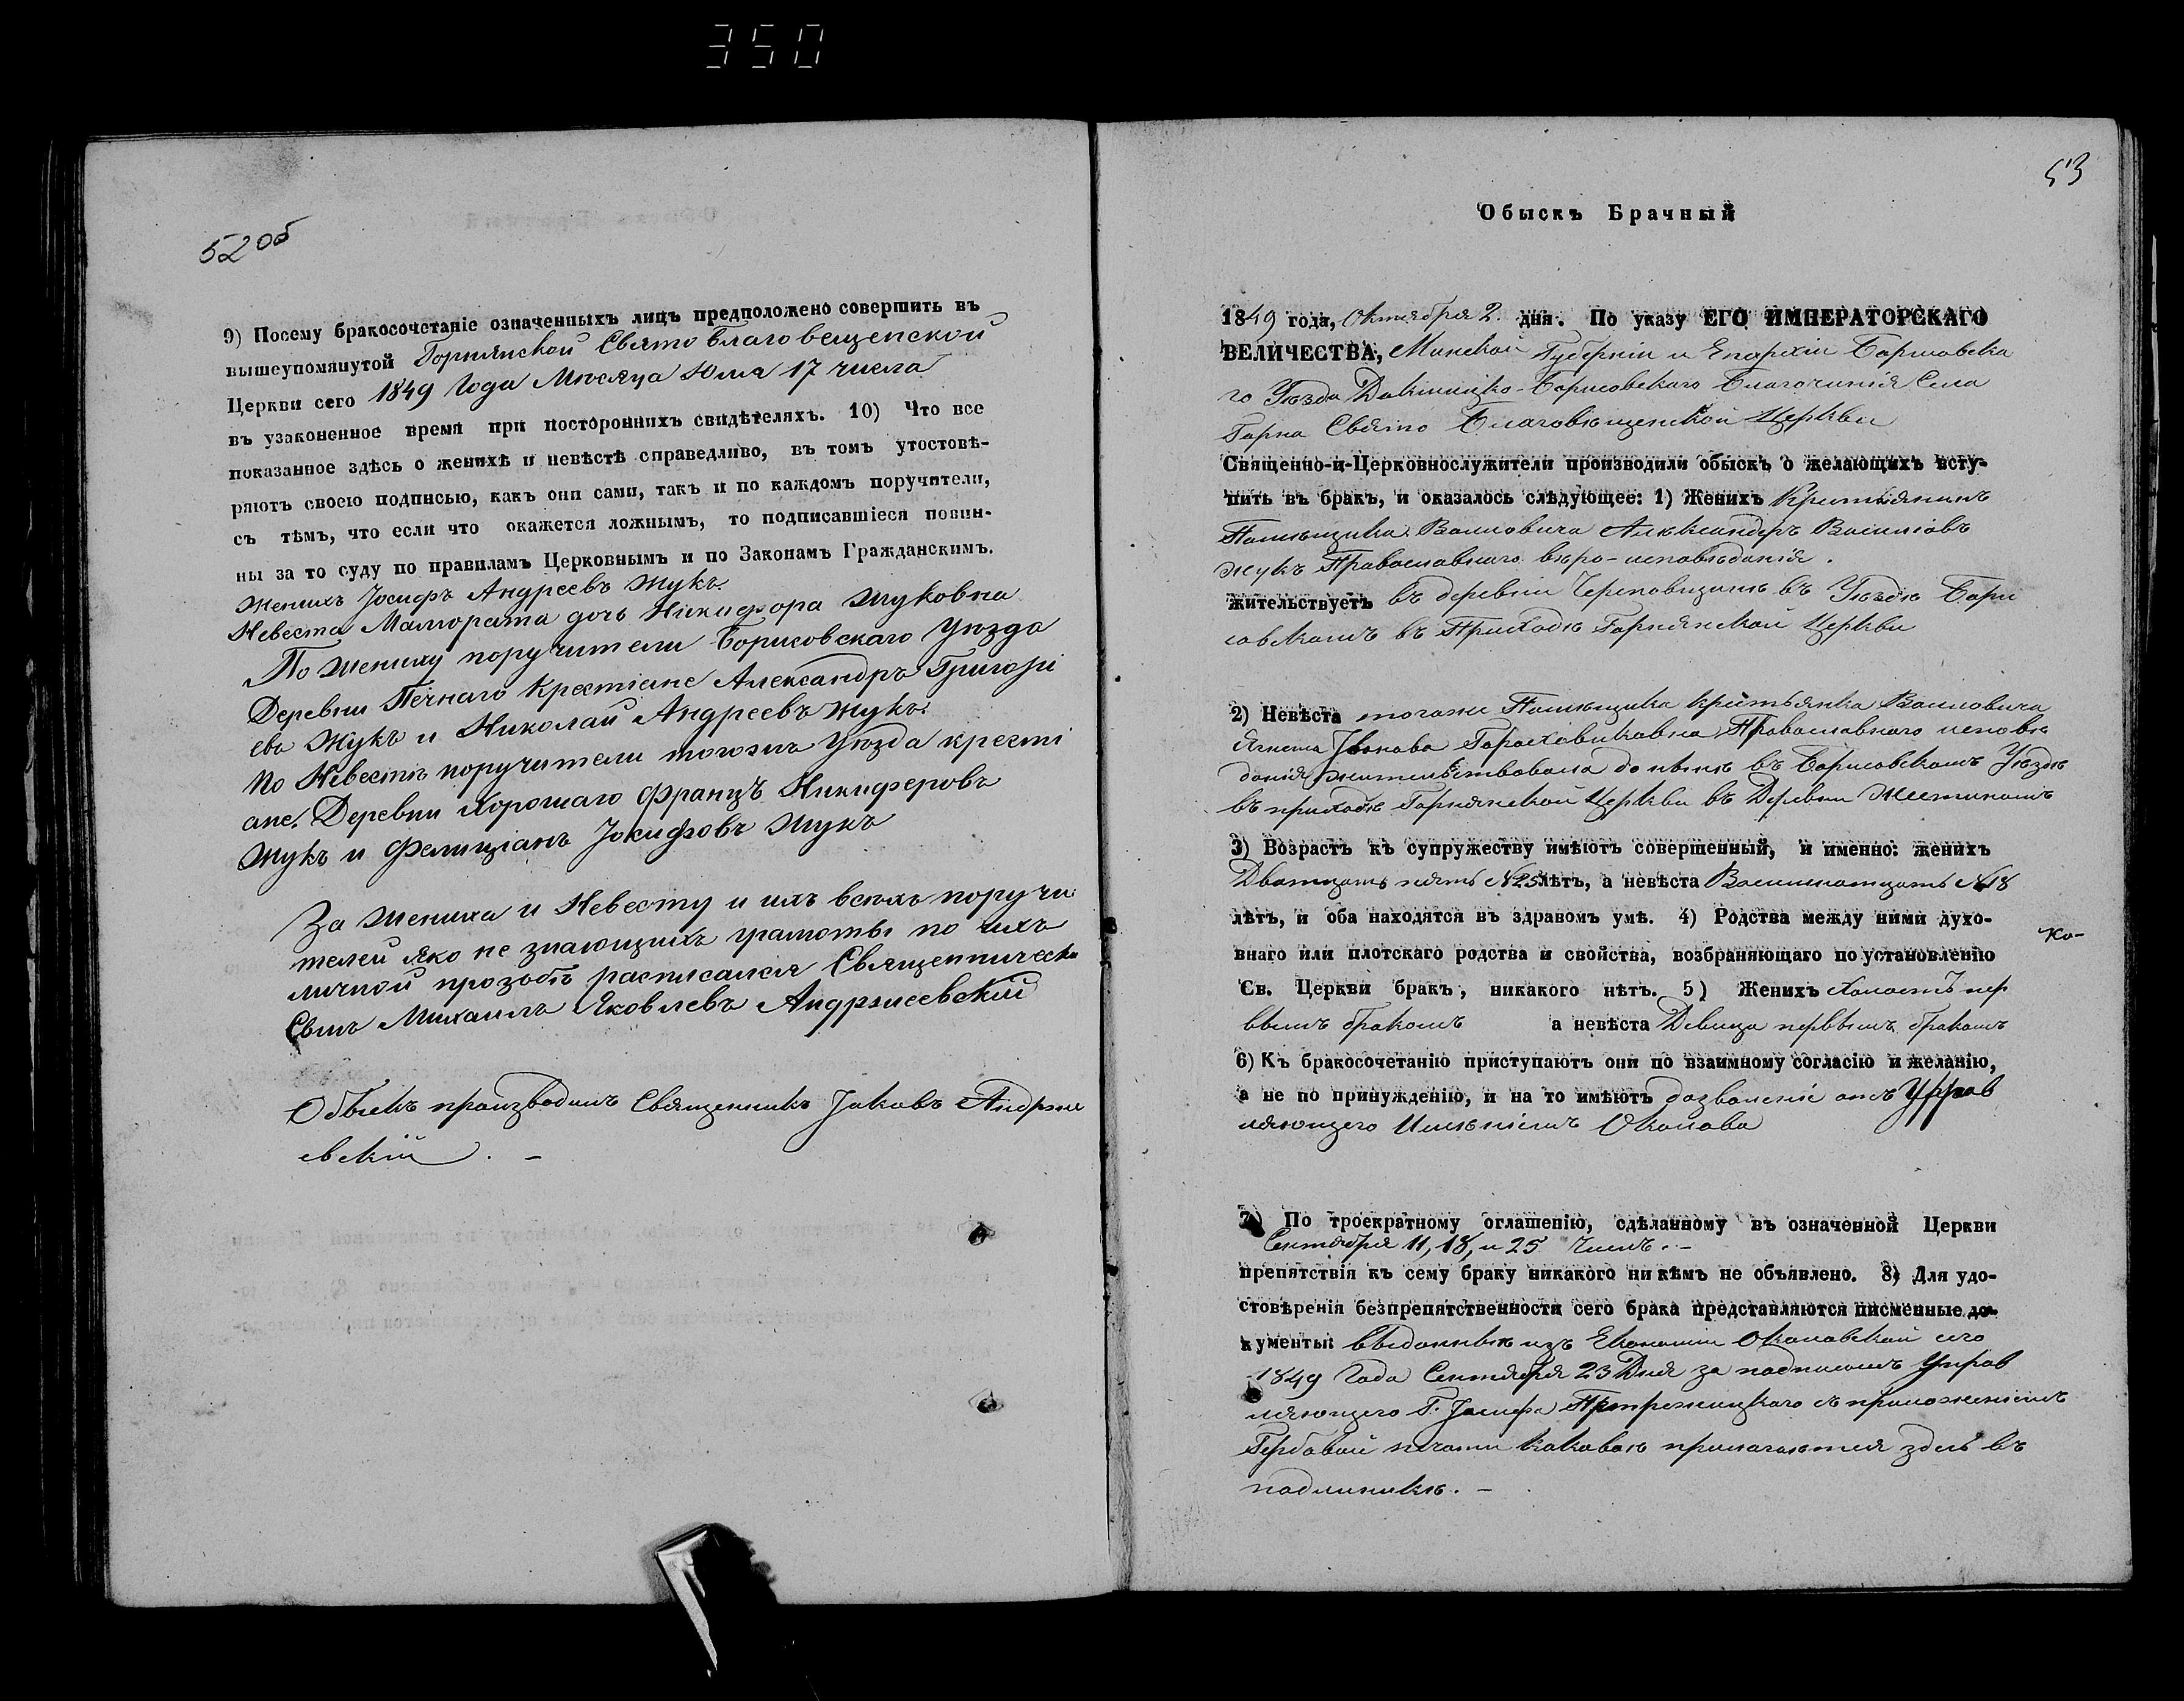 350
52 об
9) Посему бракосочетаніе означенныхъ лицъ предположено совершить въ
вышеупомянутой Горнянской Свято Благовещенской
Церкви сего 1849 Года Месяца Юля 17 числа
въ узаконенное время при постороннихъ свидѣтеляхъ. 10) Что все
показанное здѣсь о женихѣ и невѣстѣ справедливо, въ томъ утостовѣ-
ряютъ своею подписью, какъ они сами, такъ и по каждомъ поручители,
съ тѣмъ, что если что окажется ложнымъ, то подписавшіеся повин-
ны за то суду по правиламъ Церковнымъ и по Законамъ Гражданскимъ.
Женихъ Іосифъ Андреевъ Жукъ.
Невеста дочь Никифора Жуковна
По жениху поручители Борисовскаго Уѣзда
Деревни Печнаго Крестіане Александръ Григорі
евъ Жукъ и Николай Андреевъ Жукъ.
По Невестѣ поручители тогожъ Уѣзда кресті
ане. Деревни Хорошаго Францъ Никиферовъ
Жукъ и Фелиціанъ Іосифовъ Жукъ
За Жениха и Невесту и ихъ всѣхъ поручи
телей яко не знающихъ грамоты по ихъ
личной прозьбѣ расписался Священническі
Сынъ Михаилъ Яковлевъ Андржеевскій
Обыскъ производилъ Священникъ Іаковъ Андрже
евскій. –
53
Обыскъ Брачный
1849 года, Октября 2 дня. По указу ЕГО ИМПЕРАТОРСКАГО
ВЕЛИЧЕСТВА, Минской Губерніи и Епархіи Борисовска
го Уѣзда Докшицко-Борисовскаго Благочинія Села
Горна Свято Благовѣщенской Церкви
Священно-и-Церковнослужители производили обыскъ о желающихъ всту-
пить въ бракъ, и оказалось слѣдующее: 1) Женихъ Крестьянинъ
Помѣщика Воловича Александръ Василіовъ
Жукъ Православнаго вѣро-исповѣданія.
жительствуетъ въ деревни въ Уѣздѣ Бори
совскомъ въ Приходѣ Горнянской Церкви
2) Невѣста тогоже Помѣщика крестьянка Воловича
Іванова Православнаго исповѣ
данія жительствовала до нынѣ въ Борисовскомъ Уѣздѣ
въ приходѣ Горнянской Церкви въ Деревни
3) Возрастъ къ супружеству имѣютъ совершенный, и именно: женихъ
Дватцать пять №25 лѣтъ, а невѣста Восимнатцать №18
лѣтъ, и оба находятся въ здравомъ умѣ. 4) Родства между ними духо-
Ко-
внаго или плотскаго родства и свойства, возбраняющаго по установленію
Св. Церкви бракъ, никакого нѣтъ. 5) Женихъ Холостъ пер
вымъ бракомъ а невѣста Девица первымъ бракомъ
6) Къ бракосочетанію приступаютъ они по взаимному согласію и желанію,
а не по принужденію, и на то имѣютъ дозволеніе отъ Управ
ляющего Имѣніемъ Околова
7) По троекратному оглашенію, сдѣланному въ означенной Церкви
Сентября 11, 18, и 25 Числъ. –
препятствія къ сему браку никакого ни кѣмъ не объявлено. 8) Для удо-
стовѣренія безпрепятственности сего брака представляются писменные до-
кументы: выданные изъ Економіи Околовской сего
1849 Года Сентября 23 Дня за подписомъ Управ
ляющего Г. Іосифа съ приложеніемъ
Гербовой печати каковые прилагаются здесь въ
подлинникѣ. –